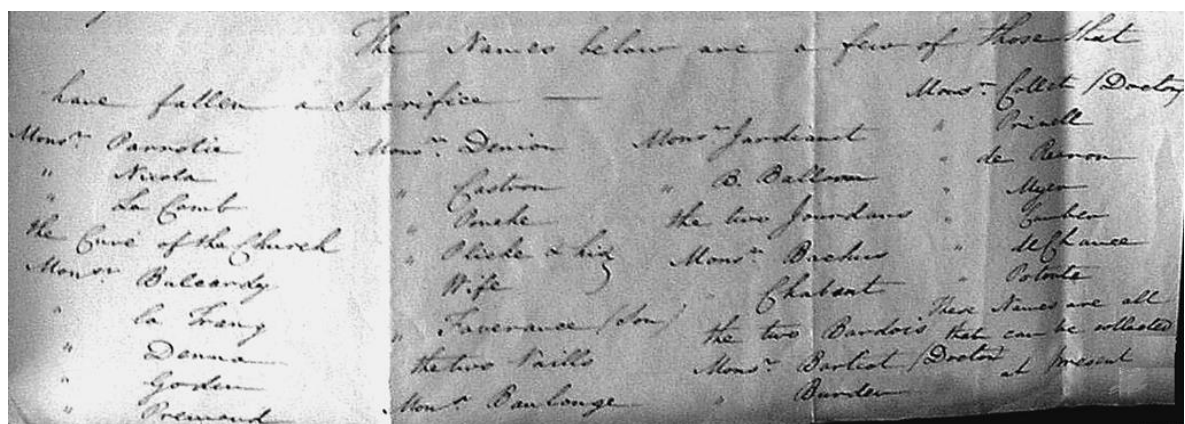 The Names below are a few of those that
have fallen a Sacrifice —
Monsr. Parrotie
" Nicola
" La Comb
the Curé of the Church
Monsr.
" la Frang
" Denma
" Godin
" Premond
Monsr. Denion
" Castron
" Pouche
" Pliche & his
Wife
" Faverance (Son)
the two Vaills
Monsr. Baulonge
Monsr. Jardianet
" B. Balloom
the two Jourdans
Monsr. Bachus
" Chabert
the two Bardois
Monsr. Bartiot (Doctor)
" Burden
Monsr. Collet (Doctor)
" Privell
" de Reenon
" Myer
"
" McChance
" Potonte
These Names are all
that can be collected
at present